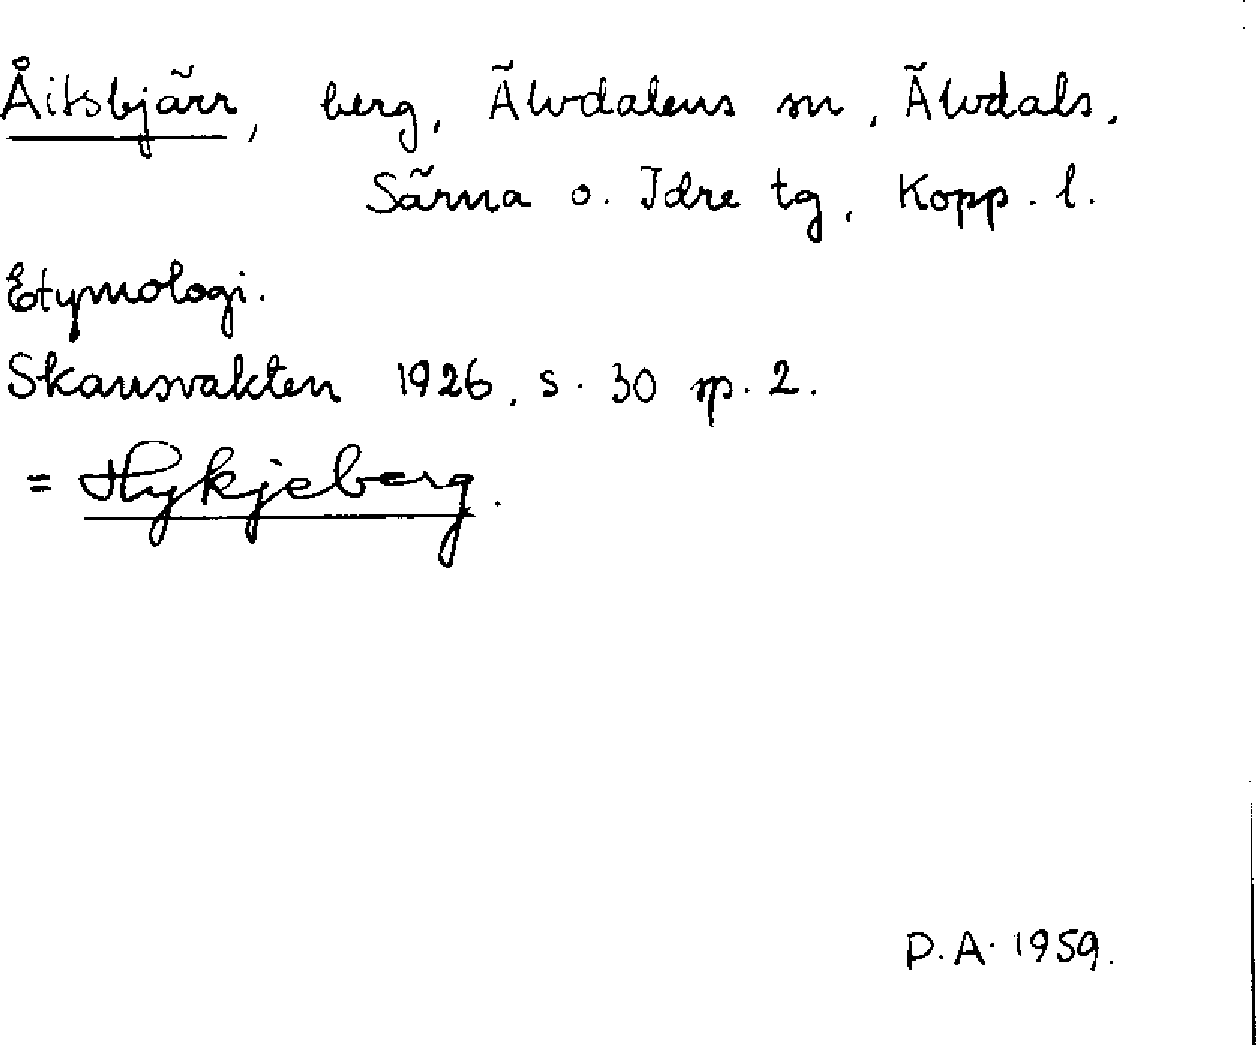 Åitsbjärr, berg, Älvdalens sn, Älvdals,
Särna o. Idre tg, Kopp. l.
Etymologi.
Skansvakten 1926, s. 30 sp. 2.
= Hykjeberg.
P.A. 1959.